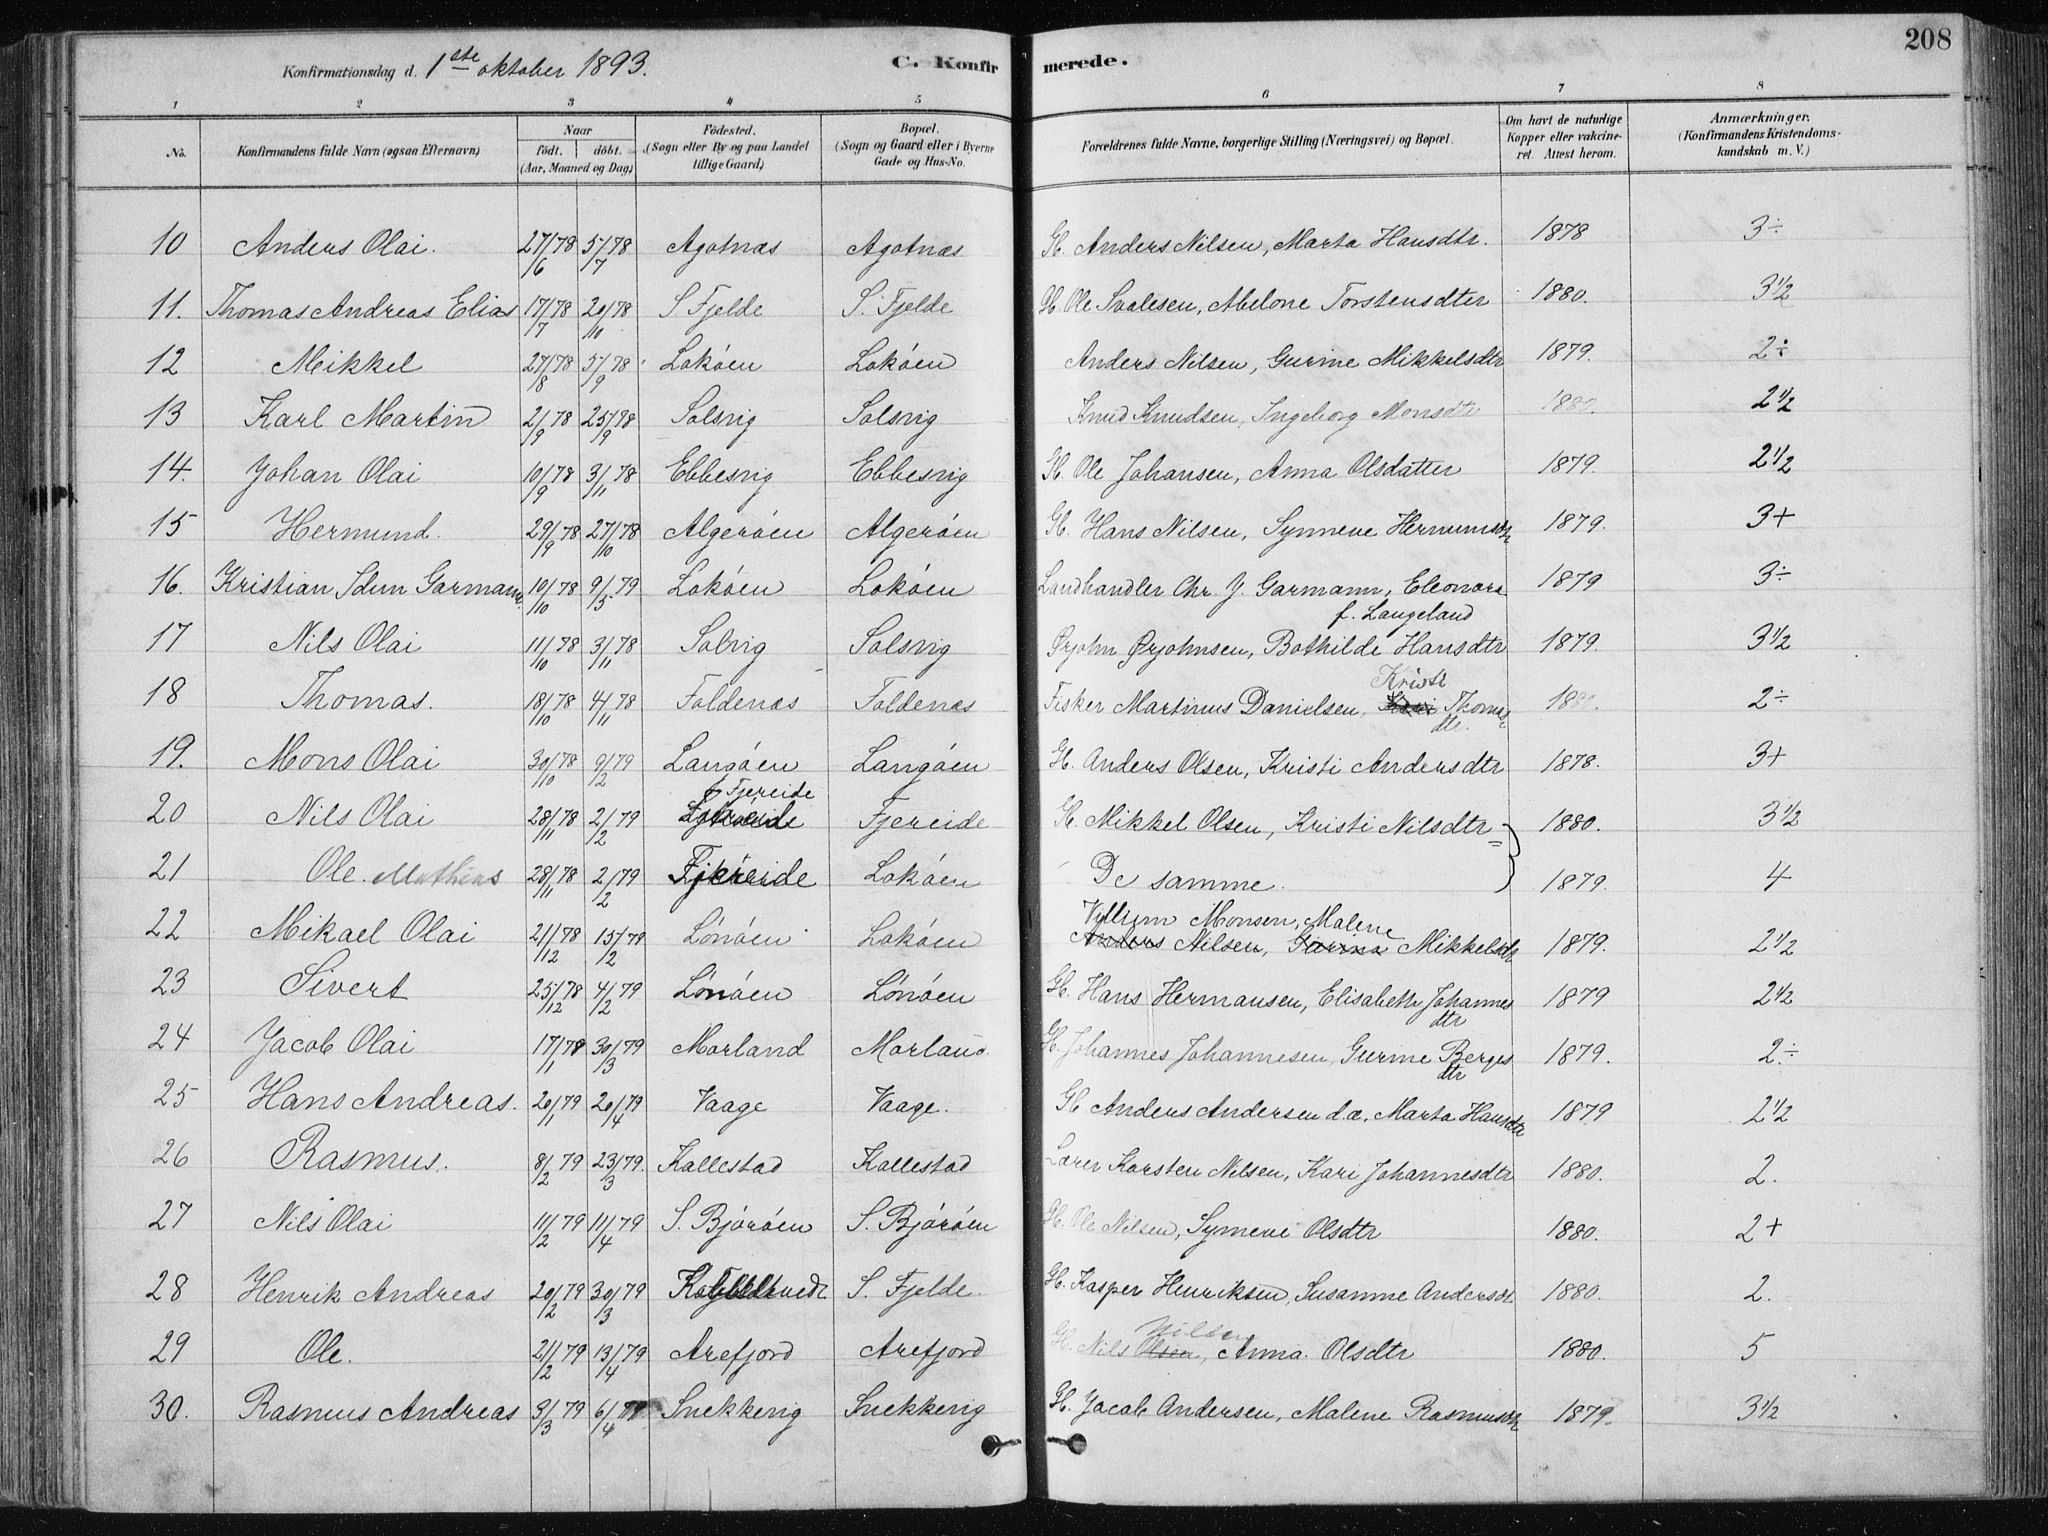 208
Konfirmationsdag d. 1ste oktober 1893.
C. Konfirmerede.
1 2 3 4 5 6 7 8
No. | Konfirmandens fulde Navn (ogsaa Efternavn) | Naar födt. döbt. (Aar, Maaned og Dag) | Födested. (Sogn eller By og paa Landet tillige Gaard) | Bopæl. (Sogn og Gaard eller i Byerne Gade og Hus-No. | Forældrenes fulde Navne, borgerlige Stilling (Næringsvei) og Bopæl. | Om havt de naturlige Kopper eller vakcineret. Attest herom. | Anmærkninger. (Konfirmandens Kristendomskundskab m. V.)
10 Anders Olai. 27/6 78 5/7 78 Agotnæs Agotnæs G. Anders Nilsen, Marta Hansdtr. 1878 3÷
11. Thomas Andreas Elias 17/7 78 20/10 78 S. Fjelde S. Fjelde G. Ole Svalesen, Abelone Torstensdtr 1880. 3 1/2
12 Mikkel 27/8 78 5/9 78 Loköen Loköen Anders Nilsen, Gurine Mikkelsdtr 1879. 2÷
13 Karl Martin 2/9 78 25/9 78 Solsvig Solsvig Knud Knudsen, Ingeborg Monsdtr 1880. 2 1/2
14. Johan Olai 10/9 78 3/11 78 Ebbesvig Ebbesvig G. Ole Johansen, Anna Olsdatter 1879. 2 1/2
15 Hermund. 29/9 78 27/10 78 Algeröen Algeröen G. Hans Nilsen, Synneve Hermunsdtr 1879. 3+
16. Kristian Idun Garmann. 10/10 78 9/5 79 Loköen Loköen Landhandler Chr. Y. Garmann, Eleonora f. Langeland 1879 3÷
17 Nils Olai 11/10 78 3/11 78 Solvig Solsvig Ørjohn Ørjohnsen, Bothilde Hansdtr 1879. 3 1/2
18 Thomas. 18/10 78 4/11 78 Foldenæs Foldenæs Fisker Martinus Danielsen, Kristi Thomasdtr. 1880. 2÷
19. Mons Olai 30/10 78 9/2 79 Langöen Langöen G. Anders Olsen, Kristi Andersdtr 1878. 3+
20 Nils Olai 28/11 78 2/2 79 Fjereide Fjereide G. Mikkel Olsen, Kristi Nilsdtr 1880. 3 1/2
21 Ole Mathias 28/11 78 2/2 79 Fjereide Loköen De samme. 1879. 4
22 Mikael Olai 21/12 78 15/2 79 Lönöen Loköen Villum Monsen, Malene Anders Nilsen, Gurina Mikkelsdtr 1879. 2 1/2
23 Sivert 25/12 78 4/2 79 Lönöen Lönöen G. Hans Hermansen, Elisabeth Johannesdtr 1879 2 1/2
24 Jacob Olai 17/1 78 30/3 79 Morland Morland. G. Johannes Johannesen, Gurine Bergesdtr 1879. 2÷
25 Hans Andreas. 20/1 79 20/4 79 Vaage Vaage. G. Anders Andersen d.æ. Marta Hansdtr 1879 2 1/2
26 Rasmus. 8/2 79 23/3 79. Kallestad Kallestad Lærer Karsten Nilsen, Kari Johannesdtr 1880. 2.
27 Nils Olai 11/2 79 11/4 79 S. Björöen S. Björöen G. Ole Nilsen, Symeve Olsdtr 1880. 2+
28 Henrik Andreas 20/2 79 30/3 79 S. Fjelde. G. Kasper Henriksen, Susanne Andersdtr. 1880. 2.
29 Ole. 21/2 79 13/4 79 Arefjord Arefjord G. Nils Olsen Nilsen, Anna Olsdtr 1880. 5
30. Rasmus Andreas 9/3 79 6/4 79 Snekkevig Snekkevig G. Jacob Andersen, Malene Rasmusdtr 1879. 3 1/2